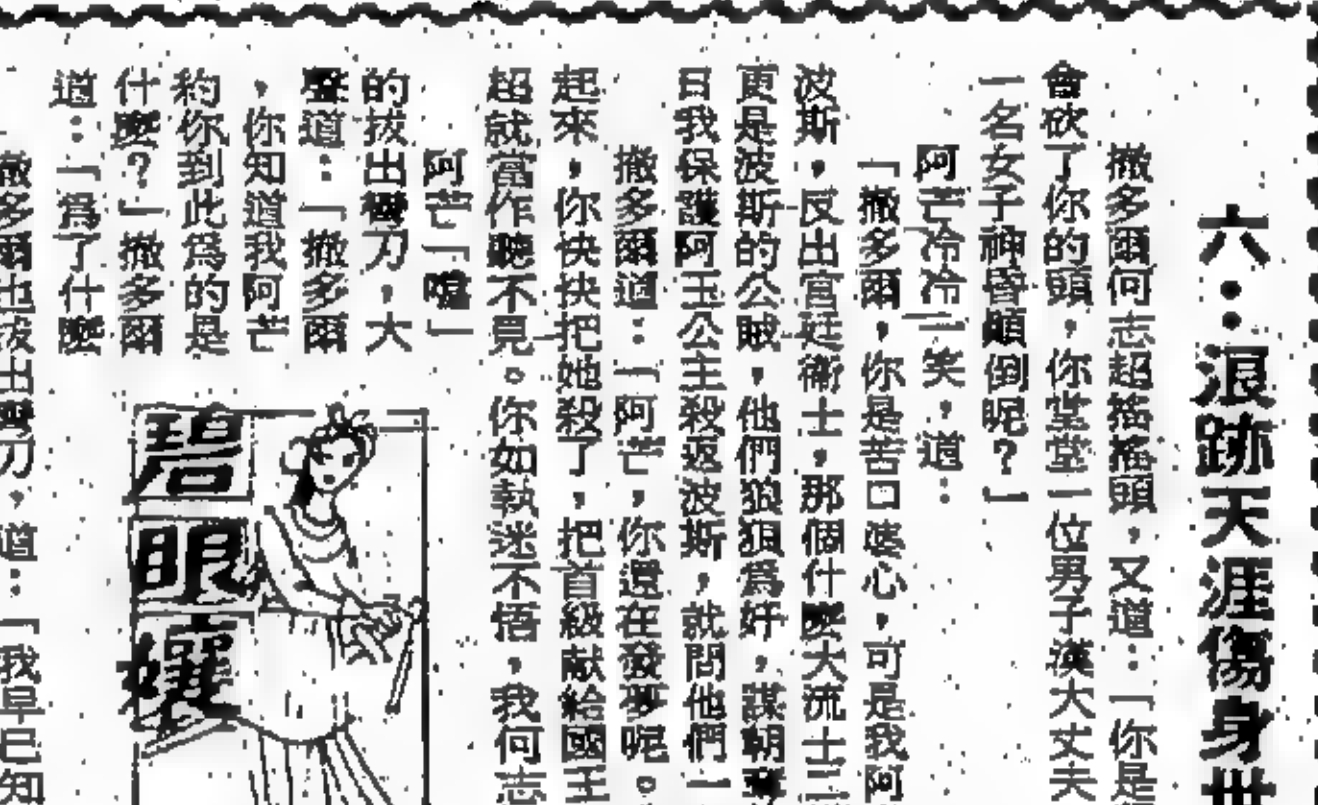 六：浪跡天涯傷身世
撒多爾何志超搖搖頭，又道：「你是
會砍了你的頭，你堂堂一位男子漢大丈夫
一名女子神昏顛倒呢？」
阿芒冷冷一笑，道：
「撒多爾，你是苦口婆心，可是我阿
波斯，反出宫廷衛士，那個什麼大流士三
更是波斯的公敵，他們狼狽爲奸，謀朝
日我保護阿玉公主殺返波斯，就問他們一
撒多爾道：「阿芒，你還在發夢呢。
起來，你快快把她殺了，把首級献給國王
超就當作聽不見。你如執迷不悟，我何志
阿芒「嗆」
的拔出彎刀，大
聲道：「撒多爾
，你知道我阿芒
約你到此爲的是
什麼？」撒多爾
道：「爲了什麼
撒多爾也拔出彎刀，道：「我早已知
碧眼孃